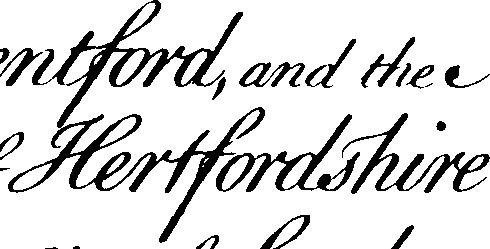 entford, and the
f Hertfordshire